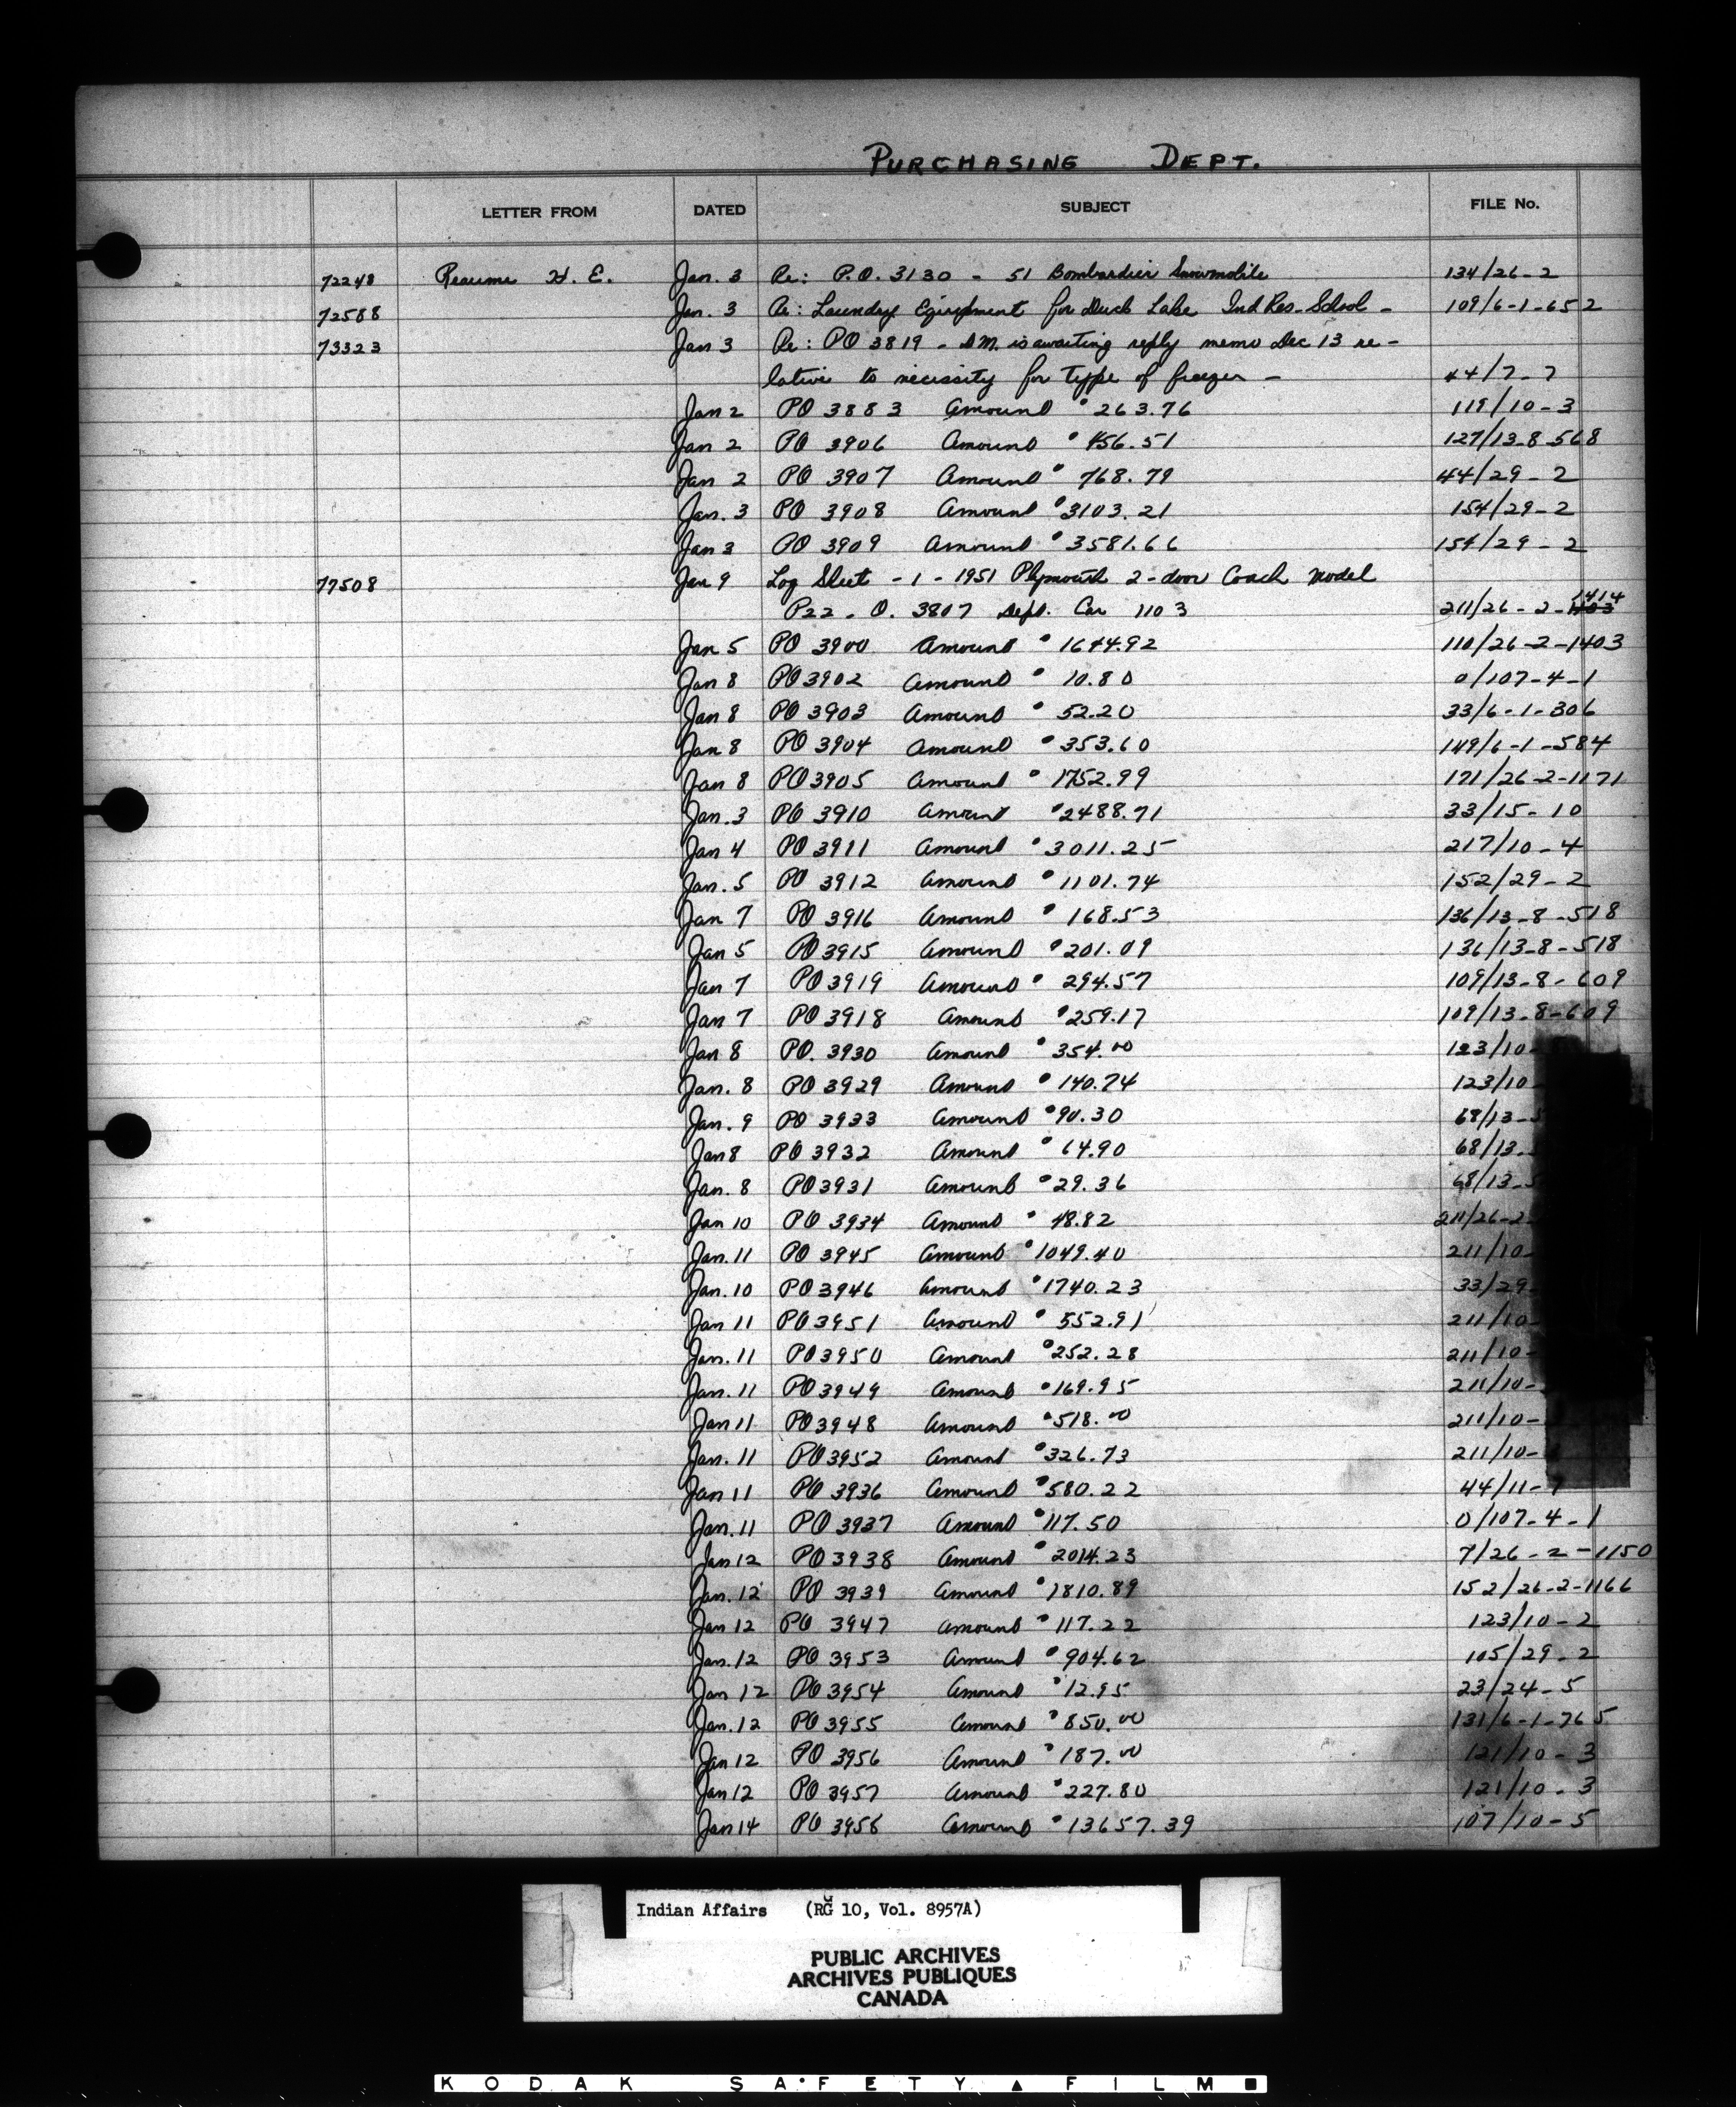 PURCHASING DEPT.
LETTER FROM DATED SUBJECT FILE No.
72248 Reaume H. E. Jan. 3 Re: P.O. 3130 - 51 Bombardier Snowmobile 134/26-2
72588 Jan. 3 Re: Laundry Equipment for Duck Lake Ind Res. School - 109/6-1-652
73323 Jan 3 Re: PO 3819 - DM. is awaiting reply memo Dec 13 re-
lative to necessity for type of freezer - 44/7-7
Jan 2 PO 3883 Amount $263.76 119/10-3
Jan 2 PO 3906 Amount $456.51 127/13-8-568
Jan 2 PO 3907 Amount $768.79 44/29-2
Jan. 3 PO 3908 Amount $3103.21 154/29-2
Jan 3 PO 3909 Amount $3581.66 154/29-2
77508 Jan 9 Log Sheet - 1 - 1951 Plymouth 2-door Coach model
P22 - O. 3807 Dept. Car 1103 211/26-2-1414
Jan 5 PO 3900 Amount $1644.92 110/26-2-1403
Jan 8 PO 3902 Amount $10.80 0/107-4-1
Jan 8 PO 3903 Amount $52.20 33/6-1-306
Jan 8 PO 3904 Amount $353.60 149/6-1-584
Jan 8 PO 3905 Amount $1752.99 171/26-2-1171
Jan. 3 PO 3910 Amount $2488.71 33/15-10
Jan 4 PO 3911 Amount $3011.25 217/10-4
Jan. 5 PO 3912 Amount $1101.74 152/29-2
Jan 7 PO 3916 Amount $168.53 136/13-8-518
Jan 5 PO 3915 Amount $201.09 136/13-8-518
Jan 7 PO 3919 Amount $294.57 109/13-8-609
Jan 7 PO 3918 Amount $259.17 109/13-8-609
Jan 8 PO. 3930 Amount $354.00 123/10-
Jan. 8 PO 3929 Amount $140.74 123/10-
Jan. 9 PO 3933 Amount $90.30 68/13-
Jan 8 PO 3932 Amount $64.90 68/13-
Jan. 8 PO 3931 Amount $29.36 68/13-
Jan 10 PO 3934 Amount $48.82 211/26-2-
Jan. 11 PO 3945 Amount $1049.40 211/10-
Jan. 10 PO 3946 Amount $1740.23 33/29-
Jan 11 PO 3951 Amount $552.91 211/10-
Jan. 11 PO 3950 Amount $252.28 211/10-
Jan. 11 PO 3949 Amount $169.95 211/10-
Jan 11 PO 3948 Amount $518.00 211/10-
Jan. 11 PO 3952 Amount $326.73 211/10-
Jan 11 PO 3936 Amount $580.22 44/11-7
Jan. 11 PO 3937 Amount $117.50 0/107-4-1
Jan 12 PO 3938 Amount $2014.23 7/26-2-1150
Jan. 12 PO 3939 Amount $1810.89 152/26-2-1166
Jan 12 PO 3947 Amount $117.22 123/10-2
Jan. 12 PO 3953 Amount $904.62 105/29-2
Jan 12 PO 3954 Amount $12.95 23/24-5
Jan. 12 PO 3955 Amount $850.00 131/6-1-765
Jan 12 PO 3956 Amount $187.00 121/10-3
Jan 12 PO 3957 Amount $227.80 121/10-3
Jan 14 PO 3958 Amount $13657.39 107/10-5
Indian Affairs (RG 10, Vol. 8957A)
PUBLIC ARCHIVES
ARCHIVES PUBLIQUES
CANADA
KODAK SAFETY ▲ FILM ■